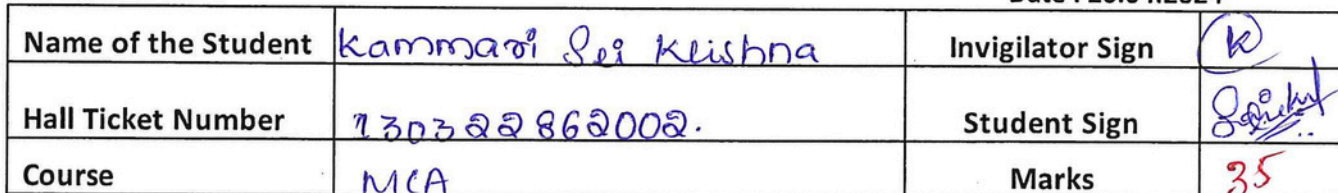 Name of the Student Kammari Sri Krishna Invigilator Sign K
Hall Ticket Number 130322862002. Student Sign
Course MCA Marks 35